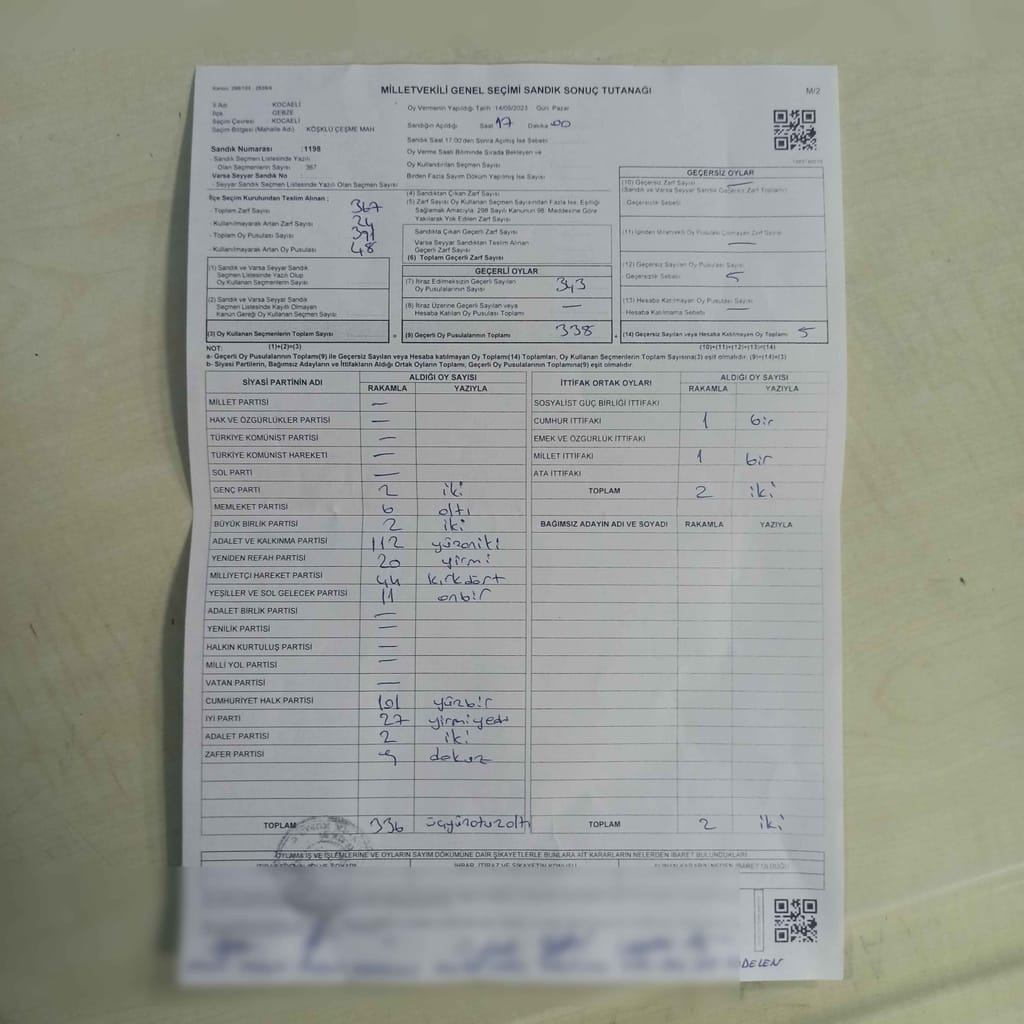 Kanun: 298/103 - 2839/4
MİLLETVEKİLİ GENEL SEÇİMİ SANDIK SONUÇ TUTANAĞI
M/2
İl Adı KOCAELİ
İlçe GEBZE
Seçim Çevresi KOCAELİ
Seçim Bölgesi (Mahalle Adı) KÖŞKLÜ ÇEŞME MAH
Oy Vermenin Yapıldığı Tarih 14/05/2023 Gün: Pazar
Sandığın Açıldığı Saat 17 Dakika 00
Sandık Saat 17:00'den Sonra Açılmış İse Sebebi
Oy Verme Saati Bitiminde Sırada Bekleyen ve
Oy Kullandırılan Seçmen Sayısı
Birden Fazla Sayım Döküm Yapılmış İse Sayısı
Sandık Numarası : 1198
- Sandık Seçmen Listesinde Yazılı
Olan Seçmenlerin Sayısı : 367
Varsa Seyyar Sandık No :
- Seyyar Sandık Seçmen Listesinde Yazılı Olan Seçmen Sayısı
İlçe Seçim Kurulundan Teslim Alınan ;
- Toplam Zarf Sayısı : 367
- Kullanılmayarak Artan Zarf Sayısı : 24
- Toplam Oy Pusulası Sayısı : 391
- Kullanılmayarak Artan Oy Pusulası : 48
(1) Sandık ve Varsa Seyyar Sandık
Seçmen Listesinde Yazılı Olup
Oy Kullanan Seçmenlerin Sayısı
(2) Sandık ve Varsa Seyyar Sandık
Seçmen Listesinde Kayıtlı Olmayan
Kanun Gereği Oy Kullanan Seçmen Sayısı
(3) Oy Kullanan Seçmenlerin Toplam Sayısı
(1)+(2)=(3)
(4) Sandıktan Çıkan Zarf Sayısı
(5) Zarf Sayısı Oy Kullanan Seçmen Sayısından Fazla İse, Eşitliği
Sağlamak Amacıyla; 298 Sayılı Kanunun 98. Maddesine Göre
Yakılarak Yok Edilen Zarf Sayısı
Sandıkta Çıkan Geçerli Zarf Sayısı
Varsa Seyyar Sandıktan Teslim Alınan
Geçerli Zarf Sayısı
(6) Toplam Geçerli Zarf Sayısı
GEÇERLİ OYLAR
(7) İtiraz Edilmeksizin Geçerli Sayılan
Oy Pusulalarının Sayısı 343
(8) İtiraz Üzerine Geçerli Sayılan veya
Hesaba Katılan Oy Pusulası Toplamı —
= (9) Geçerli Oy Pusulalarının Toplamı 338
GEÇERSİZ OYLAR
(10) Geçersiz Zarf Sayısı —
(Sandık ve Varsa Seyyar Sandık Geçersiz Zarf Toplamı)
- Geçersizlik Sebebi :
(11) İçinden Milletvekili Oy Pusulası Çıkmayan Zarf Sayısı
—
(12) Geçersiz Sayılan Oy Pusulası Sayısı
- Geçersizlik Sebebi : 5
(13) Hesaba Katılmayan Oy Pusulası Sayısı
- Hesaba Katılmama Sebebi : —
+ (14) Geçersiz Sayılan veya Hesaba Katılmayan Oy Toplamı 5
(10)+(11)+(12)+(13)=(14)
NOT:
a- Geçerli Oy Pusulalarının Toplamı(9) ile Geçersiz Sayılan veya Hesaba katılmayan Oy Toplam(14) Toplamları, Oy Kullanan Seçmenlerin Toplam Sayısına(3) eşit olmalıdır. (9)+(14)=(3)
b- Siyasi Partilerin, Bağımsız Adayların ve İttifakların Aldığı Ortak Oyların Toplamı, Geçerli Oy Pusulalarının Toplamına(9) eşit olmalıdır.
SİYASİ PARTİNİN ADI ALDIĞI OY SAYISI
RAKAMLA YAZIYLA
MİLLET PARTİSİ —
HAK VE ÖZGÜRLÜKLER PARTİSİ —
TÜRKİYE KOMÜNİST PARTİSİ —
TÜRKİYE KOMÜNİST HAREKETİ —
SOL PARTİ —
GENÇ PARTİ 2 iki
MEMLEKET PARTİSİ 6 altı
BÜYÜK BİRLİK PARTİSİ 2 iki
ADALET VE KALKINMA PARTİSİ 112 yüzoniki
YENİDEN REFAH PARTİSİ 20 yirmi
MİLLİYETÇİ HAREKET PARTİSİ 44 kırkdört
YEŞİLLER VE SOL GELECEK PARTİSİ 11 onbir
ADALET BİRLİK PARTİSİ —
YENİLİK PARTİSİ —
HALKIN KURTULUŞ PARTİSİ —
MİLLİ YOL PARTİSİ —
VATAN PARTİSİ —
CUMHURİYET HALK PARTİSİ 101 yüzbir
İYİ PARTİ 27 yirmiyedi
ADALET PARTİSİ 2 iki
ZAFER PARTİSİ 9 dokuz
TOPLAM 336 üçyüzotuzaltı
İTTİFAK ORTAK OYLARI ALDIĞI OY SAYISI
RAKAMLA YAZIYLA
SOSYALİST GÜÇ BİRLİĞİ İTTİFAKI
CUMHUR İTTİFAKI 1 bir
EMEK VE ÖZGÜRLÜK İTTİFAKI
MİLLET İTTİFAKI 1 bir
ATA İTTİFAKI
TOPLAM 2 iki
BAĞIMSIZ ADAYIN ADI VE SOYADI RAKAMLA YAZIYLA
TOPLAM 2 iki
OYLAMA İŞ VE İŞLEMLERİNE VE OYLARIN SAYIM DÖKÜMÜNE DAİR ŞİKAYETLERLE BUNLARA AİT KARARLARIN NELERDEN İBARET BULUNDUKLARI
İHBAR, İTİRAZ VE ŞİKAYETİN KONUSU
ALINAN KARARIN NEDEN İBARET OLDUĞU
DELEN